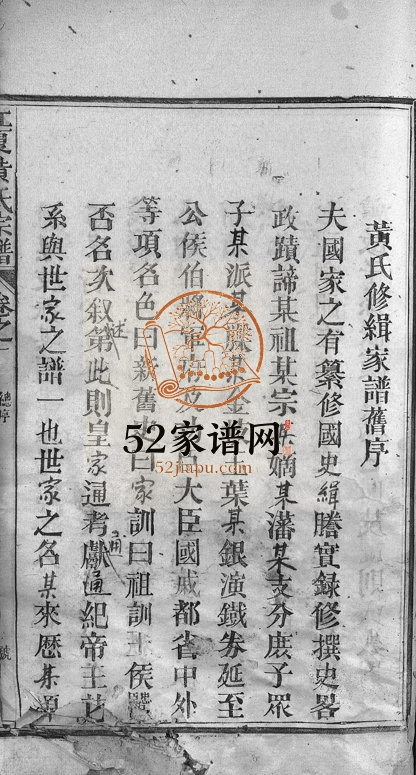 黃氏修緝家譜舊序
夫國家之有纂修國史緝謄實録修撰史畧
政蹟諦某祖某宗某嫡某藩某支分庻子眾
子某派某 某金 葉某銀演鐵券延至
公侯伯將軍 大臣國戚都省中外
等項名色曰新舊 曰家訓曰祖訓王侯
否名次叙第此則皇家通考獻通紀帝王
述
通
系與世家之譜一也世家之名某來歷某
江夏黃氏宗譜
卷之一
總序
號
52家谱网
52jiapu.com